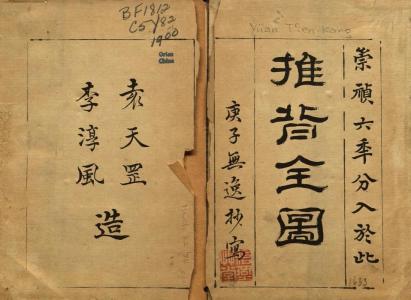 崇禎六年分入於此
推背全圖
庚子無逸抄寫
袁天罡
李淳風
造
BF1812
C5Y82
1900
Orien
China
Yüan T'ien-kang
1633